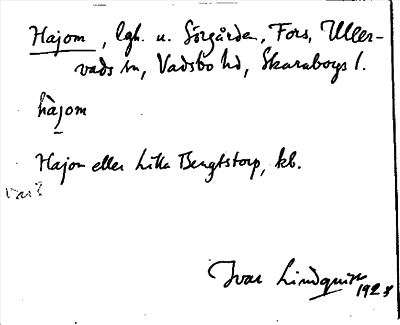 Hajom, lgh. u. Sörgården, Fors, Uller-
vads sn, Vadsbo hd, Skaraborgs l.
hàjom
Hajom eller Lilla Bengtstorp, kb.
var?
Ivar Lindquist
1928